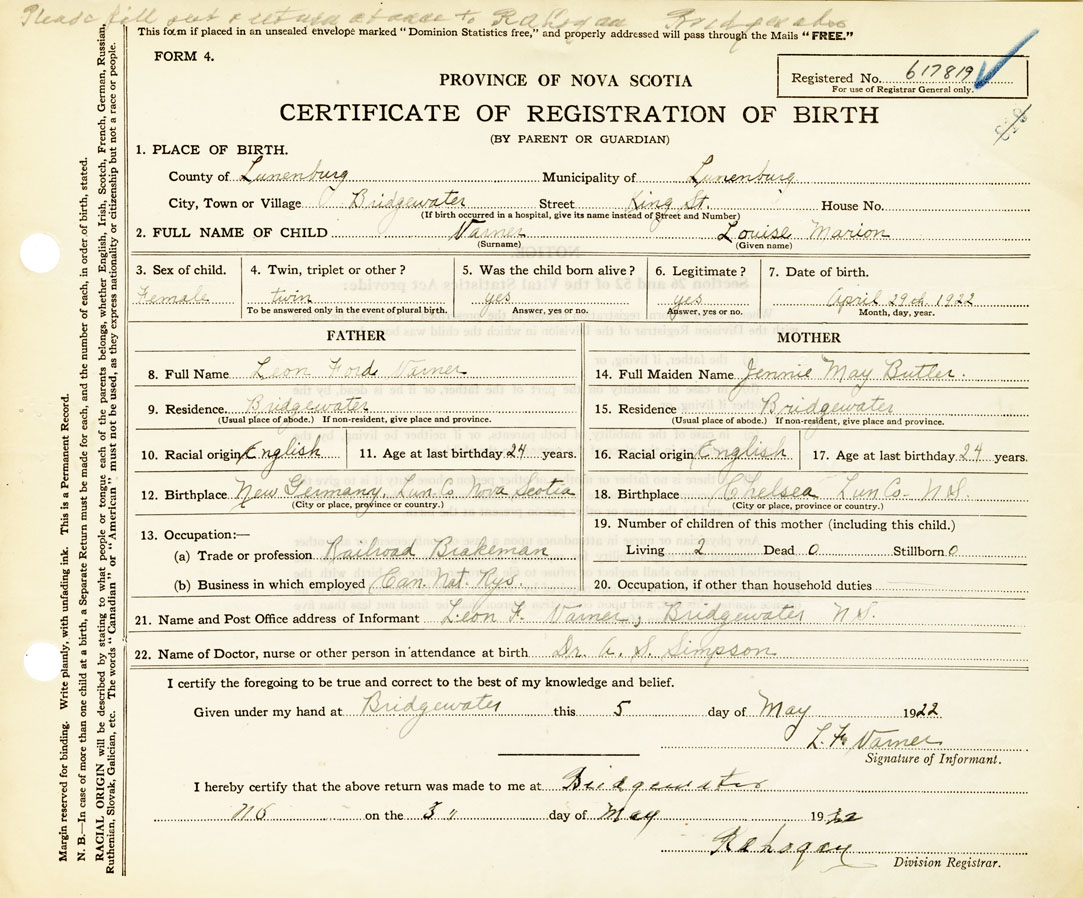 Please fill out & return at once to R A Hogan Bridgewater
This form if placed in an unsealed envelope marked "Dominion Statistics free," and properly addressed will pass through the Mails "FREE."
FORM 4.
Registered No. 617819
For use of Registrar General only.
PROVINCE OF NOVA SCOTIA
CERTIFICATE OF REGISTRATION OF BIRTH
(BY PARENT OR GUARDIAN)
1. PLACE OF BIRTH.
County of Lunenburg Municipality of Lunenburg
City, Town or Village Bridgewater Street King St. House No.
(If birth occurred in a hospital, give its name instead of Street and Number)
2. FULL NAME OF CHILD Varner Louise Marion
(Surname) (Given name)
3. Sex of child. 4. Twin, triplet or other? 5. Was the child born alive? 6. Legitimate? 7. Date of birth.
Female twin yes yes April 29th 1922
To be answered only in the event of plural birth. Answer, yes or no. Answer, yes or no. Month, day, year.
FATHER
8. Full Name Leon Ford Varner
9. Residence Bridgewater
(Usual place of abode.) If non-resident, give place and province.
10. Racial origin English 11. Age at last birthday 24 years.
12. Birthplace New Germany, Lun Co Nova Scotia
(City or place, province or country.)
13. Occupation:—
(a) Trade or profession Railroad Brakeman
(b) Business in which employed Can. Nat. Rys.
MOTHER
14. Full Maiden Name Jennie May Butler.
15. Residence Bridgewater
(Usual place of abode.) If non-resident, give place and province.
16. Racial origin English 17. Age at last birthday 24 years.
18. Birthplace Chelsea Lun Co- N S.
(City or place, province or country.)
19. Number of children of this mother (including this child.)
Living 2 Dead 0 Stillborn 0
20. Occupation, if other than household duties
21. Name and Post Office address of Informant Leon F. Varner, Bridgewater N S.
22. Name of Doctor, nurse or other person in attendance at birth Dr. A. S. Simpson
I certify the foregoing to be true and correct to the best of my knowledge and belief.
Given under my hand at Bridgewater this 5 day of May 1922
L. F. Varner
Signature of Informant.
I hereby certify that the above return was made to me at Bridgewater
NS on the 5" day of May 1922
R A Hogan
Division Registrar.
Margin reserved for binding. Write plainly, with unfading ink. This is a Permanent Record.
N. B.—In case of more than one child at a birth, a Separate Return must be made for each, and the number of each, in order of birth, stated.
RACIAL ORIGIN will be described by stating to what people or tongue each of the parents belongs, whether English, Irish, Scotch, French, German, Russian,
Ruthenian, Slovak, Galician, etc. The words "Canadian" or "American" must not be used, as they express nationality or citizenship but not a race or people.